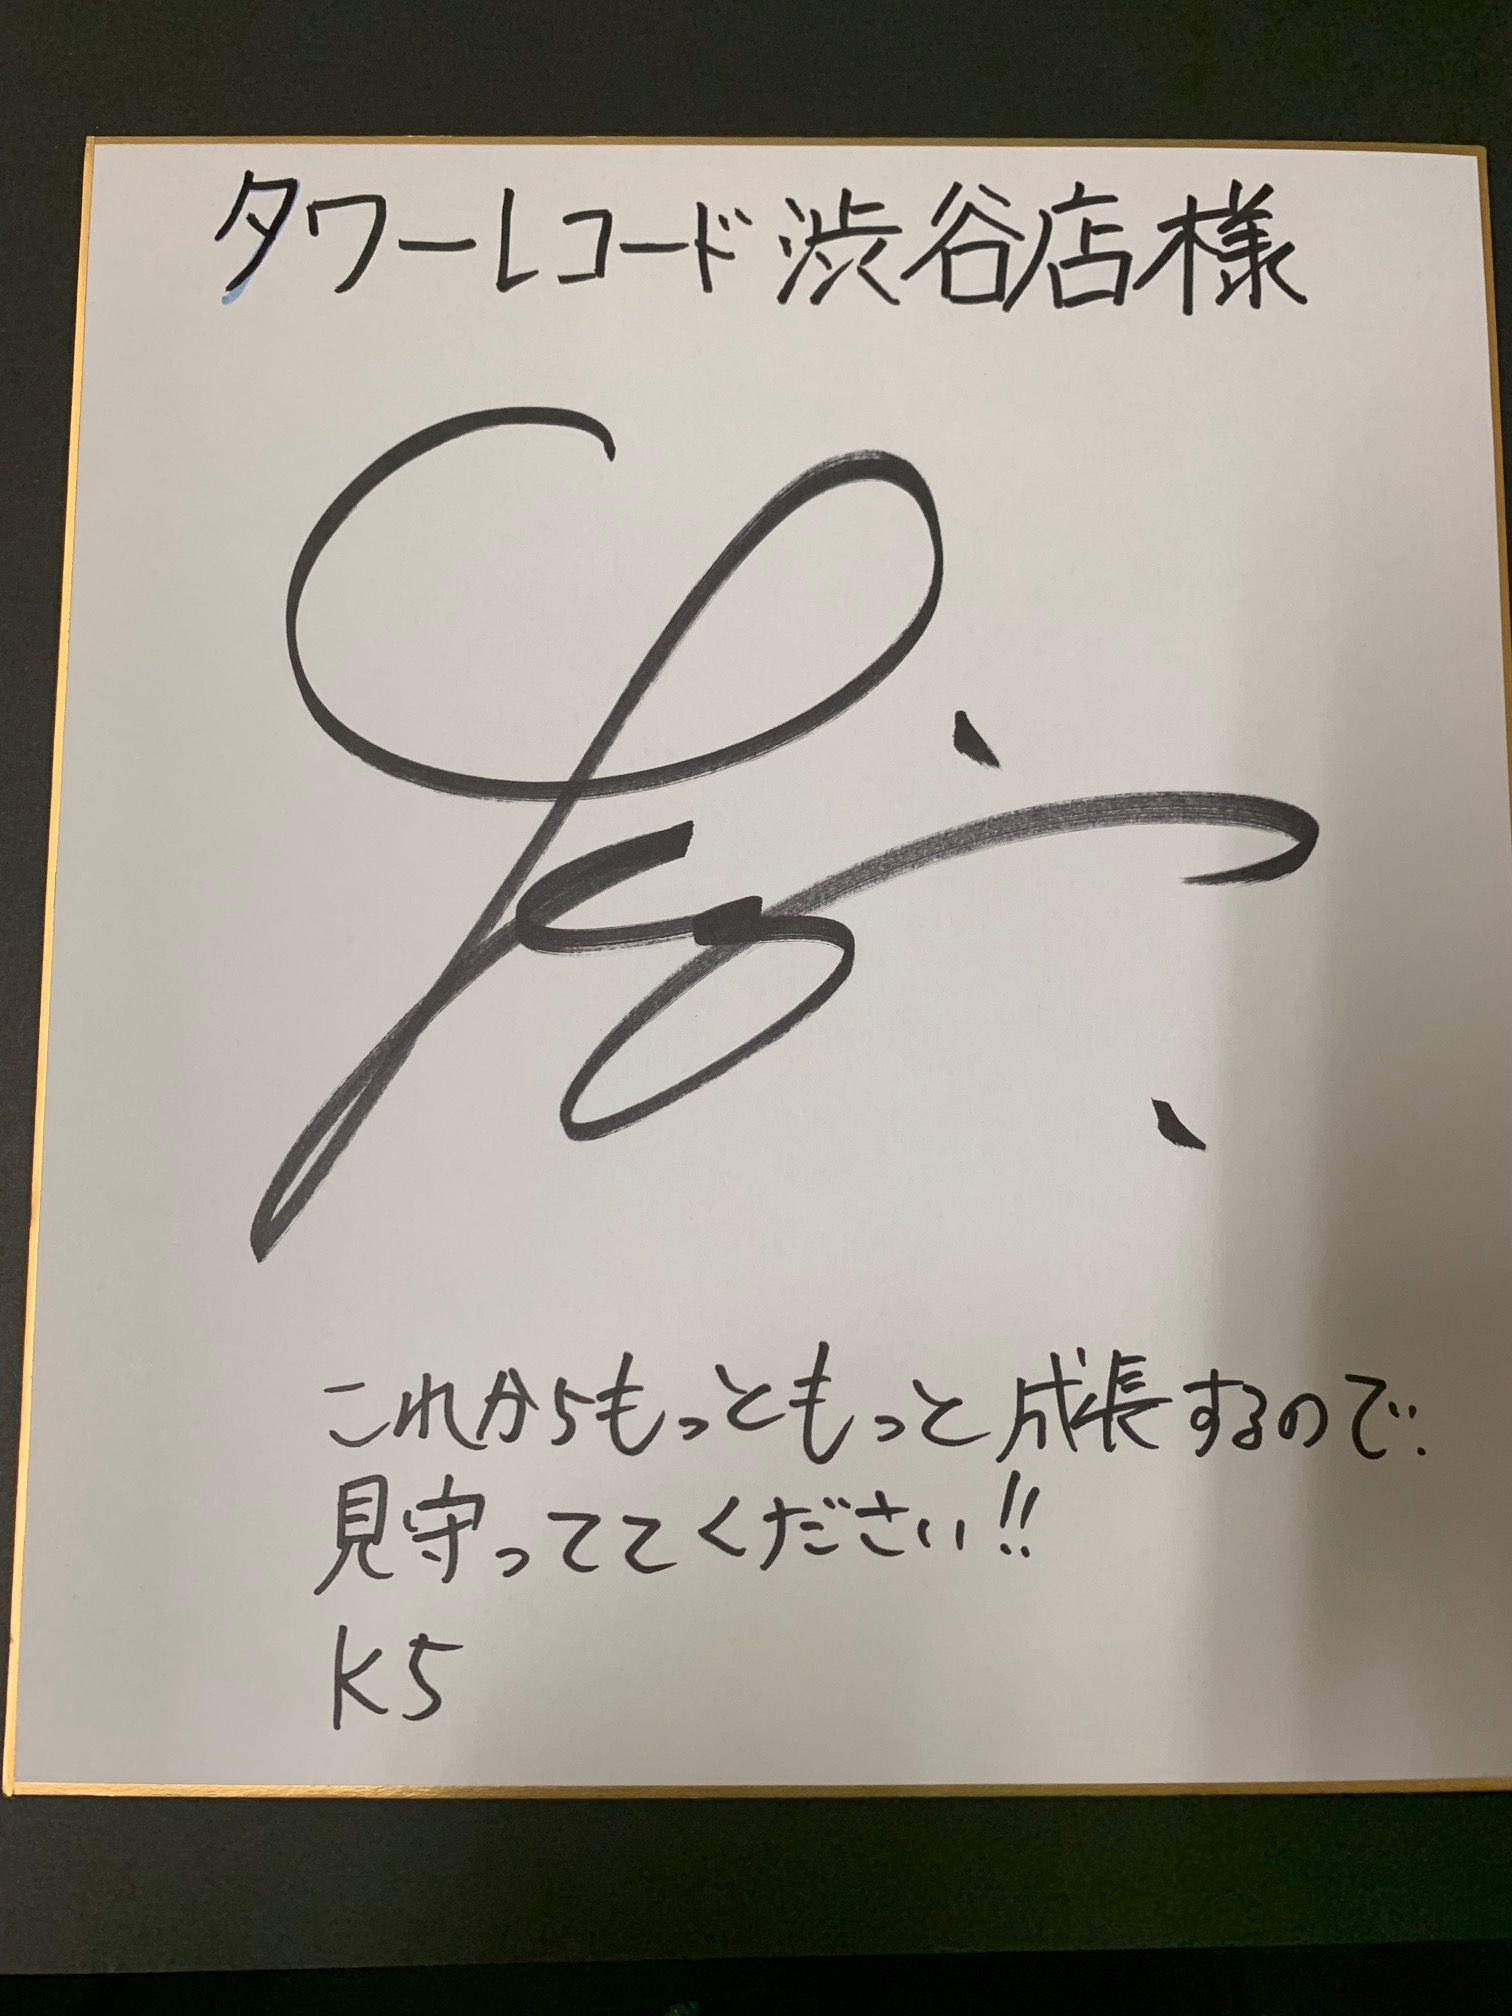 タワーレコード渋谷店様
これからもっともっと成長するので.
見守っててください!!
K5